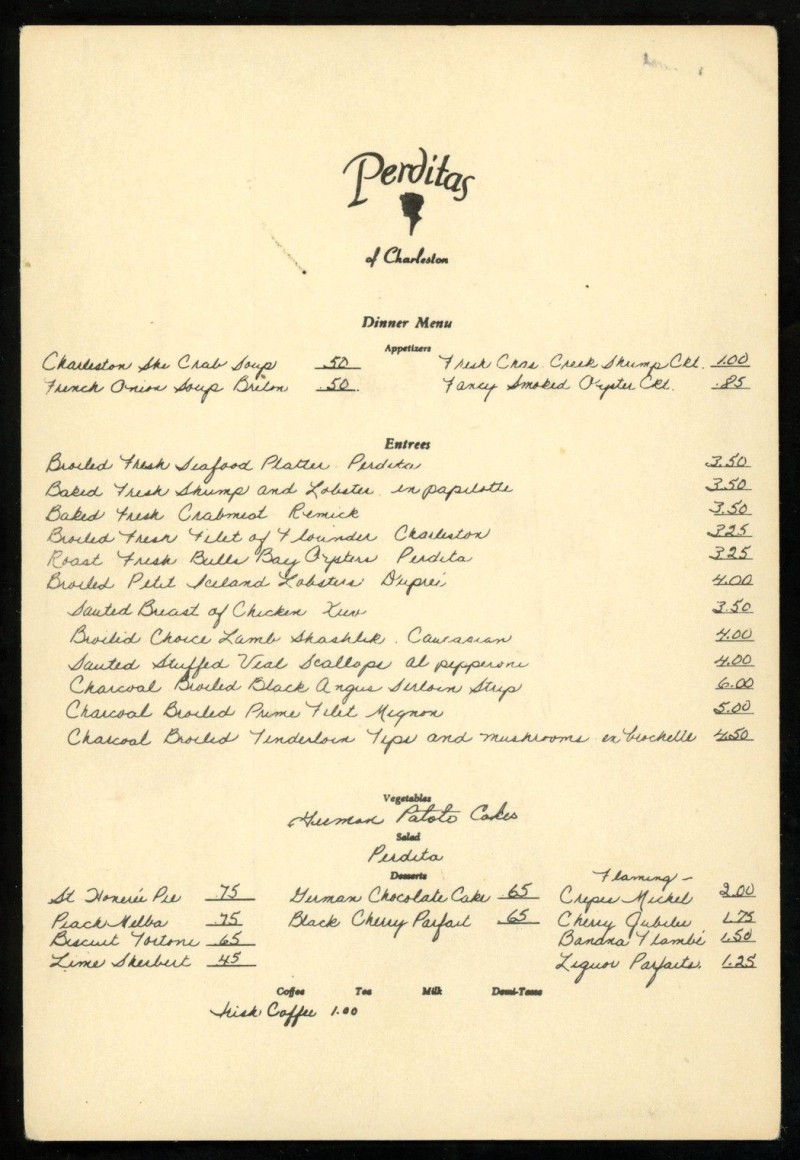 Perditas
of Charleston
Dinner Menu
Appetizers
Charleston She Crab Soup .50
Fresh Chas. Creek Shrimp Ckt. 1.00
French Onion Soup Breton .50
Fancy Smoked Oyster Ckt. .85
Entrees
Broiled Fresh Seafood Platter Perdita 3.50
Baked Fresh Shrimp and Lobster en papilotte 3.50
Baked Fresh Crabmeat Remick 3.50
Broiled Fresh Filet of Flounder Charleston 3.25
Roast Fresh Bulls Bay Oysters Perdita 3.25
Broiled Petit Iceland Lobsters Dupreé 4.00
Sauted Breast of Chicken 3.50
Broiled Choice Lamb Shashlik. Caucasian 4.00
Sauted Stuffed Veal Scallops al pepperoni 4.00
Charcoal Broiled Black Angus Sirloin Strip 6.00
Charcoal Broiled Prime Filet Mignon 5.00
Charcoal Broiled Tenderloin Tips and mushrooms en brochette 4.50
Vegetables
German Patoto Cakes
Salad
Perdita
Desserts
St Honereé Pie .75
Peach Melba .75
Biscuit Tortoni .65
Lime Sherbert .45
German Chocolate Cake .65
Black Cherry Parfait .65
Flaming -
Crepes Michel 2.00
Cherry Jubilee 1.75
Banana Flambé 1.50
Liquor Parfaits. 1.25
Coffee Tea Milk Demi-Tasse
Irish Coffee 1.00